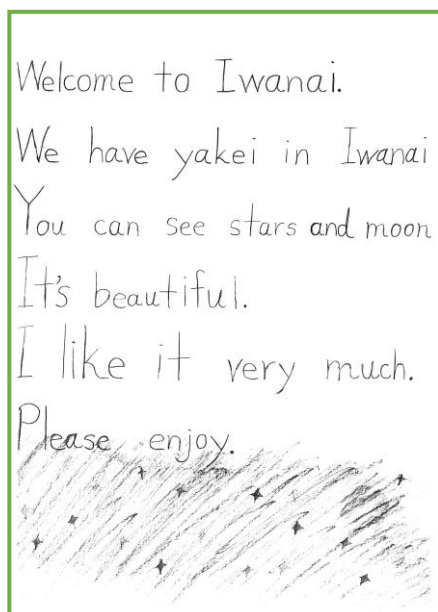 Welcome to Iwanai.
We have yakei in Iwanai
You can see stars and moon
It's beautiful.
I like it very much.
Please enjoy.